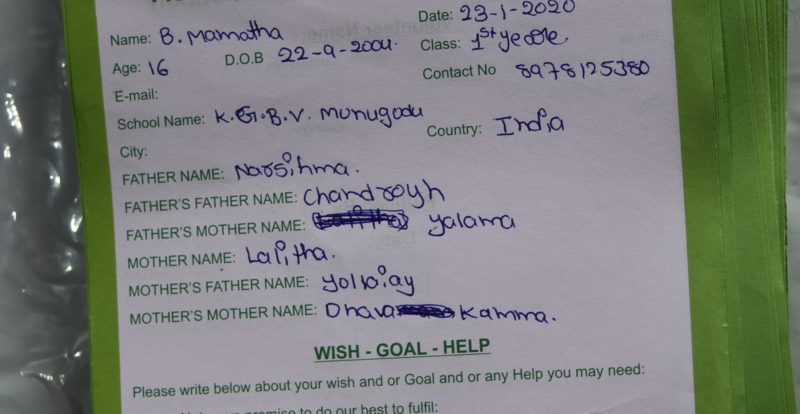 Date: 23-1-2020
Name: B. Mamatha
Class: 1st yeare
Age: 16 D.O.B 22-9-2004.
Contact No 8978125380
E-mail:
School Name: K.G.B.V. Munugodu
Country: India
City:
FATHER NAME: Narsihma.
FATHER'S FATHER NAME: Chandroyh
FATHER'S MOTHER NAME: Yalama
MOTHER NAME: Lalitha.
MOTHER'S FATHER NAME:
MOTHER'S MOTHER NAME: Dhava Kamma.
WISH - GOAL - HELP
Please write below about your wish and or Goal and or any Help you may need:
promise to do our best to fulfil: